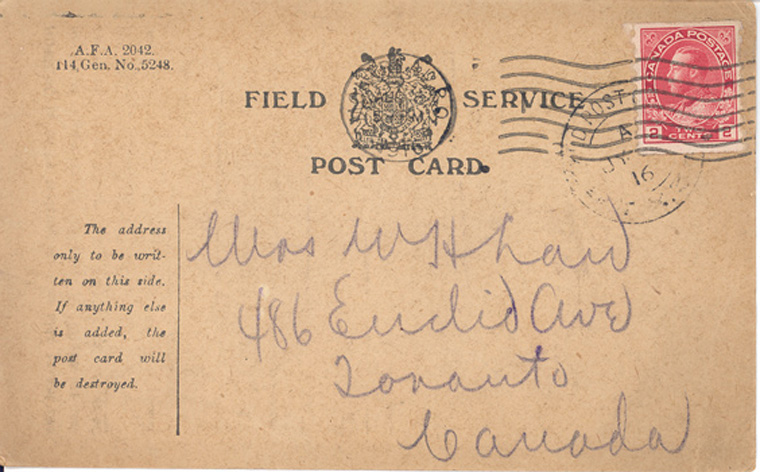 A.F.A. 2042.
114.Gen. No.5248.
FIELD SERVICE
POST CARD.
CANADA POSTAGE
2 2
TWO CENTS
POST
16
The address
only to be writ-
ten on this side.
If anything else
is added, the
post card will
be destroyed.
Mrs W H Law
486 Euclid Ave
Toronto
Canada